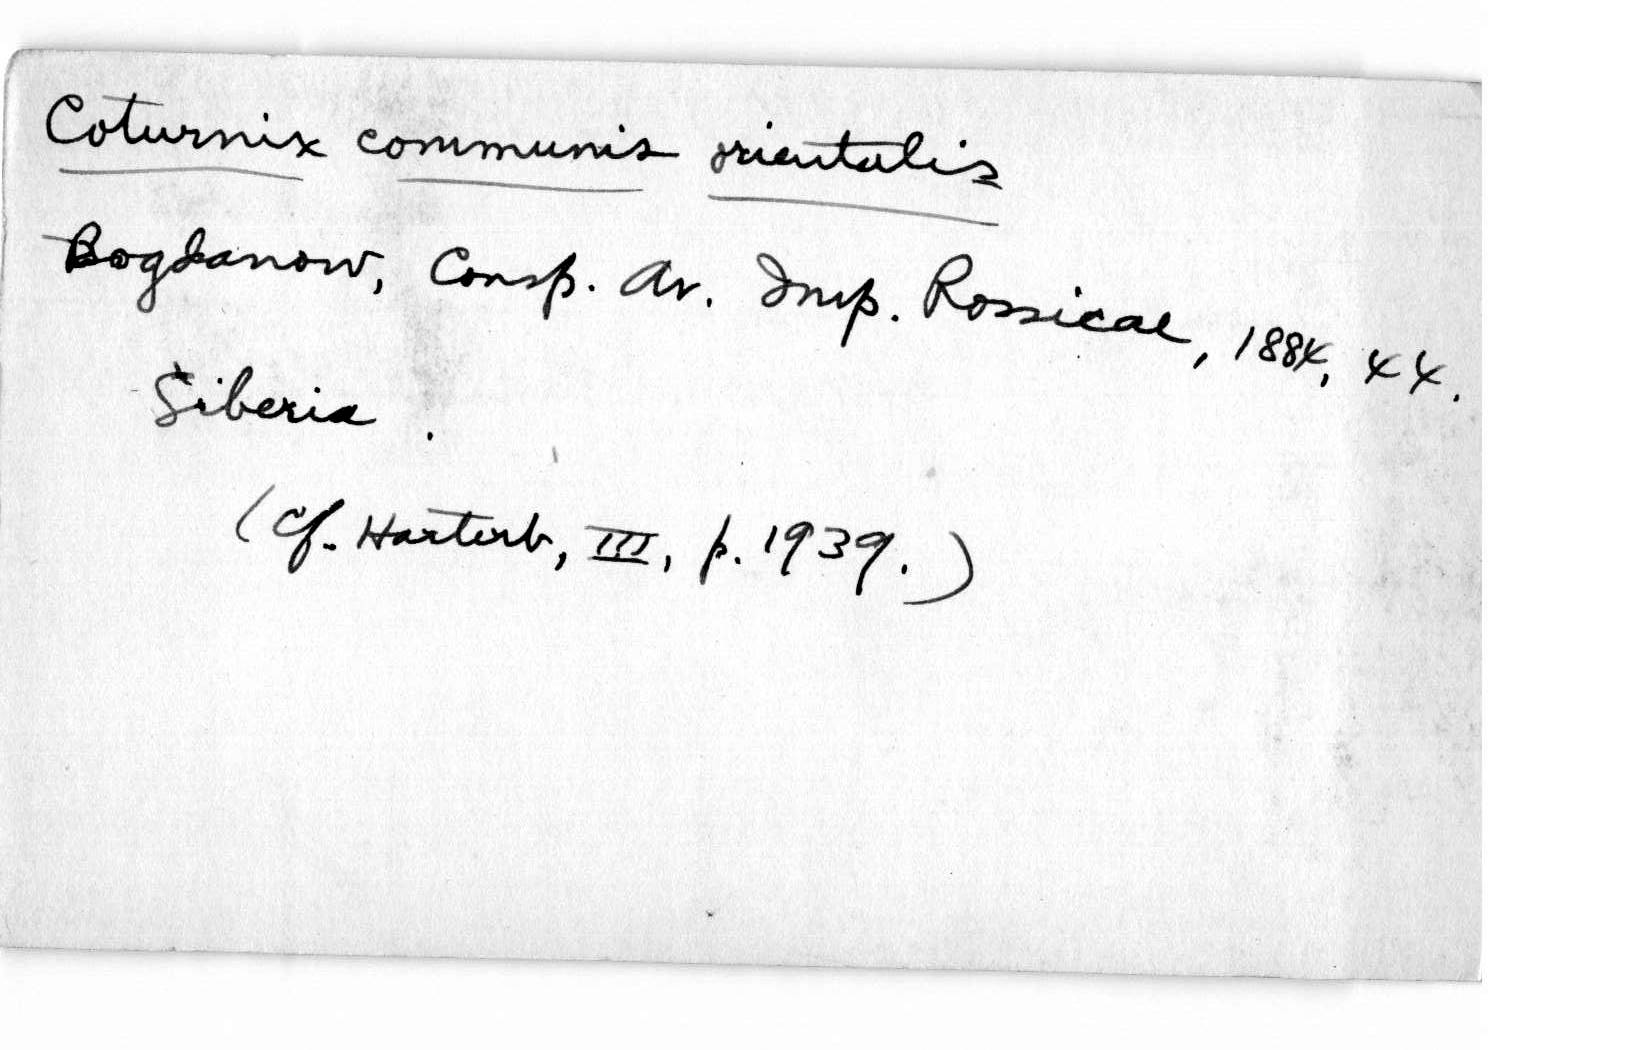 Coturnix communis orientalis
Bogdanow, Consp. Av. Imp. Rossicae, 1884, 44.
Siberia.
(Cf. Hartert, III, p. 1939.)